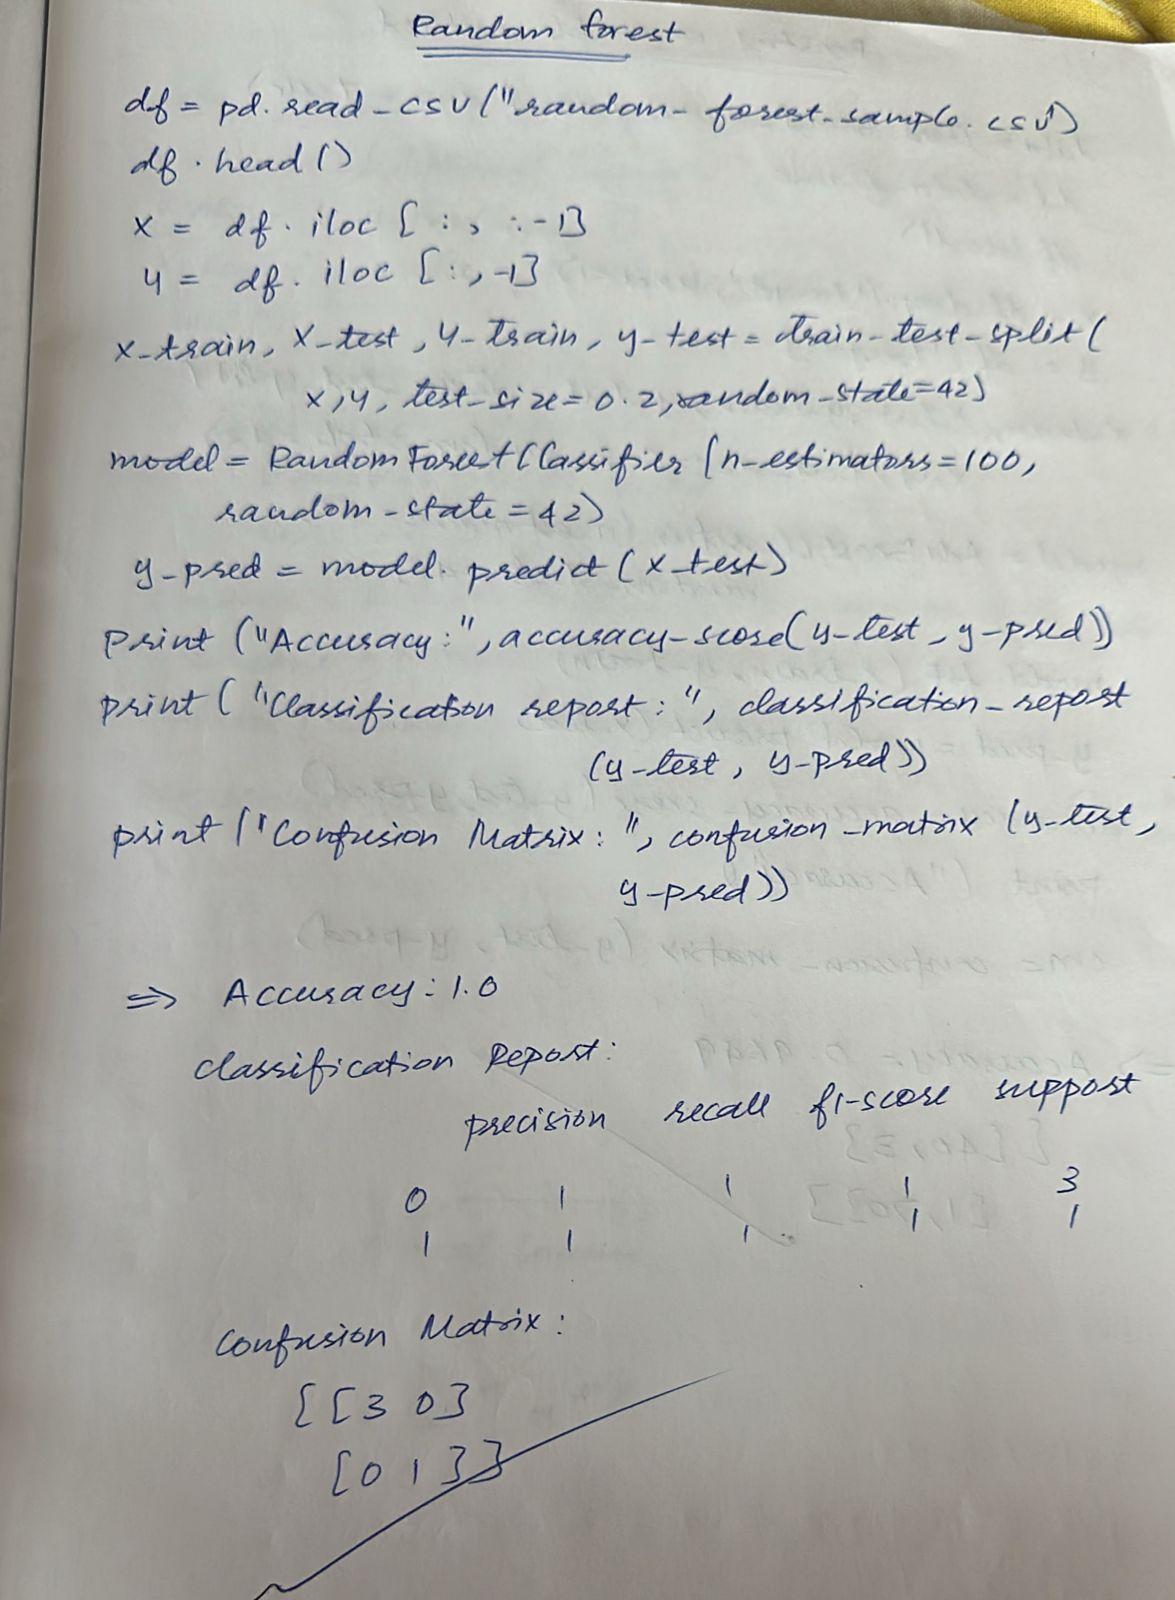 Random forest
df = pd. read_csv("random-forest-sample.csv")
df.head()
X = df.iloc[:, :-1]
y = df.iloc[:, -1]
X-train, X-test, y-train, y-test = train-test-split(
X, y, test-size=0.2, random-state=42)
model = RandomForestClassifier(n-estimators=100,
random-state=42)
y-pred = model.predict(X-test)
Print ("Accuracy:", accuracy-score(y-test, y-pred))
print("Classification report:", classification-report
(y-test, y-pred))
print("Confusion Matrix:", confusion-matrix (y-test,
y-pred))
=> Accuracy: 1.0
classification Report:
precision recall f1-score support
0 1 1 1 3
1 1 1 1 1
Confusion Matrix:
[[3 0]
[0 1]]